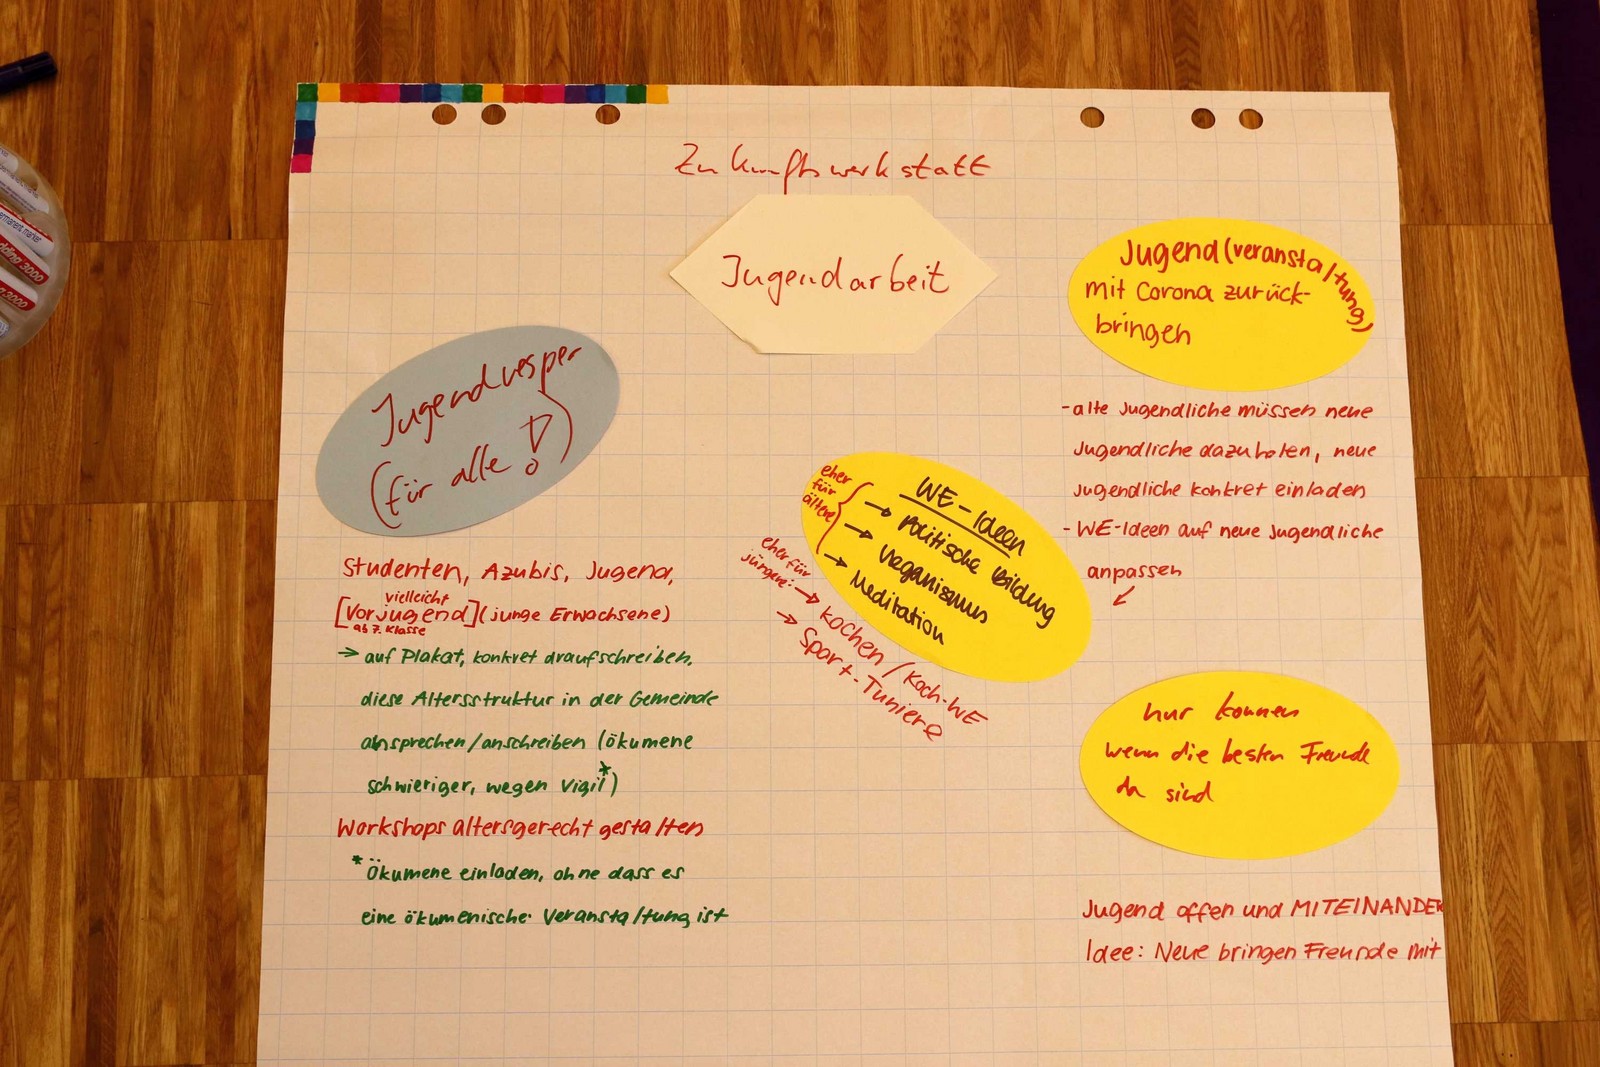 Zukunftswerkstatt
Jugendarbeit
Jugendvesper
(für alle!)
Studenten, Azubis, Jugend,
vielleicht
[Vorjugend] (junge Erwachsene)
ab 7. Klasse
→ auf Plakat, konkret draufschreiben.
diese Altersstruktur in der Gemeinde
absprechen/anschreiben (ökumene
schwieriger, wegen Vigil*)
Workshops altersgerecht gestalten
*Ökumene einladen, ohne dass es
eine ökumenische Veranstaltung ist
eher
für
ältere
WE-Ideen
→ Politische Bildung
→ Veganismus
→ Meditation
eher für
jüngere:
→ Kochen / Koch-WE
→ Sport-Tuniere
Jugend(veranstaltung)
mit Corona zurück-
bringen
- alte Jugendliche müssen neue
Jugendliche dazuholen, neue
Jugendliche konkret einladen
- WE-Ideen auf neue Jugendliche
anpassen
nur kommen
wenn die besten Freunde
da sind
Jugend offen und MITEINANDER
Idee: Neue bringen Freunde mit
permanent marker
edding 3000
3000